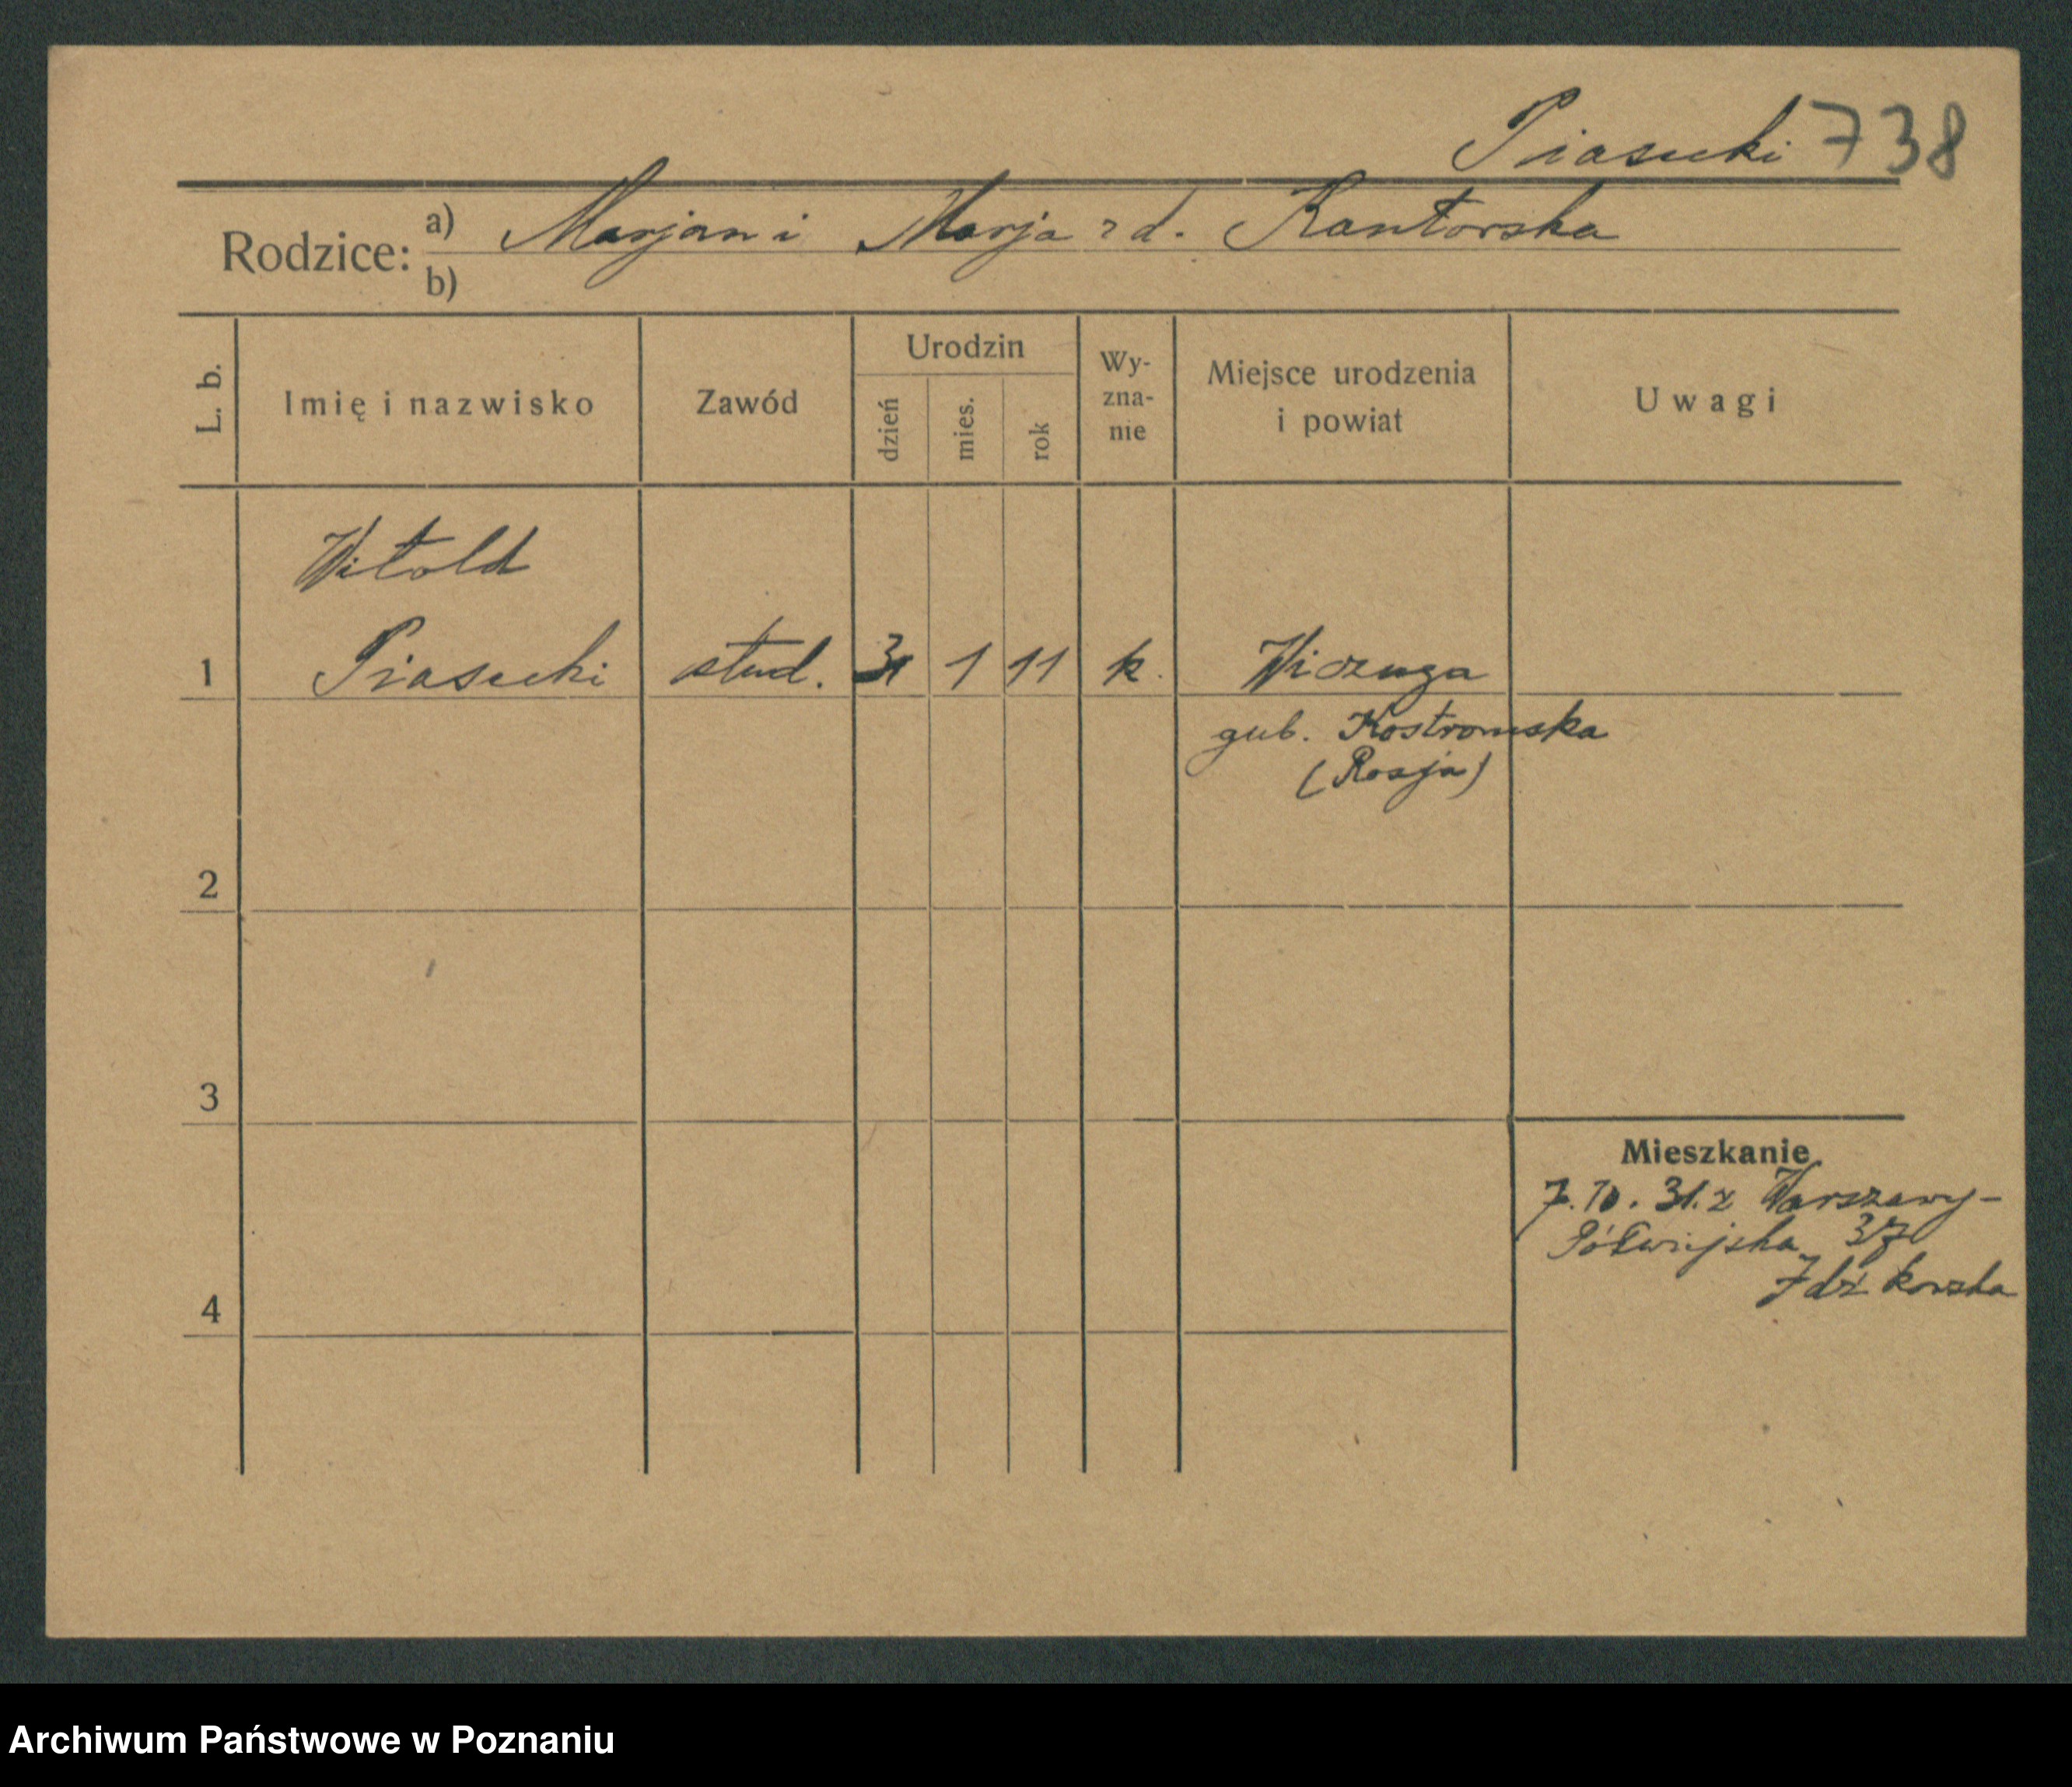 Piasecki 738
Rodzice: a) Marjan i Marja zd. Kantorska
b)
L. b. Imię i nazwisko Zawód Urodzin dzień mies. rok Wy-zna-nie Miejsce urodzenia i powiat Uwagi
Witold
1 Piasecki stud. 31 1 11 k. Wiczuga
gub. Kostromska
(Rosja)
2
3
Mieszkanie
7.10.31. z Warszawy -
Półwiejska 37
4
Archiwum Państwowe w Poznaniu